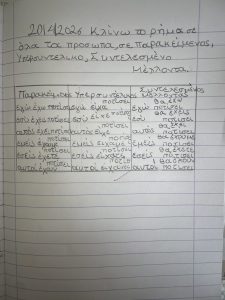 20/4/2026 Κλίνω το ρήμα σε
όλα τα πρόσωπα, σε Παρακείμενος,
Υπερσυντέλικο, Συντελεσμένο
Μέλλοντα.
Συντελεσμένος
Παρακείμενος Υπερσυντέλικος Μέλλοντας
ποτίσει θα έχω
εγώ έχω ποτίσει εγώ είχα εγώ ποτίσει
ποτίσει θα έχεις
εσύ έχεις ποτίσει εσύ είχες εσύ ποτίσει
ποτίσει θα έχει
αυτός έχει ποτίσει αυτός είχε αυτός ποτίσει
ποτίσει ποτίσει θα έχουμε
εμείς έχουμε εμείς είχαμε εμείς ποτίσει
ποτίσει ποτίσει θα έχετε
εσείς έχετε εσείς είχατε εσείς ποτίσει
ποτίσει ποτίσει θα έχουν
αυτοί έχουν αυτοί είχαν αυτοί ποτίσει